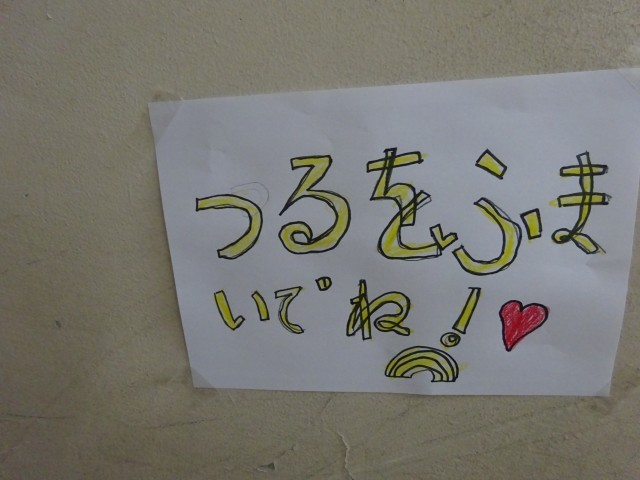 つるをふま
いでね!